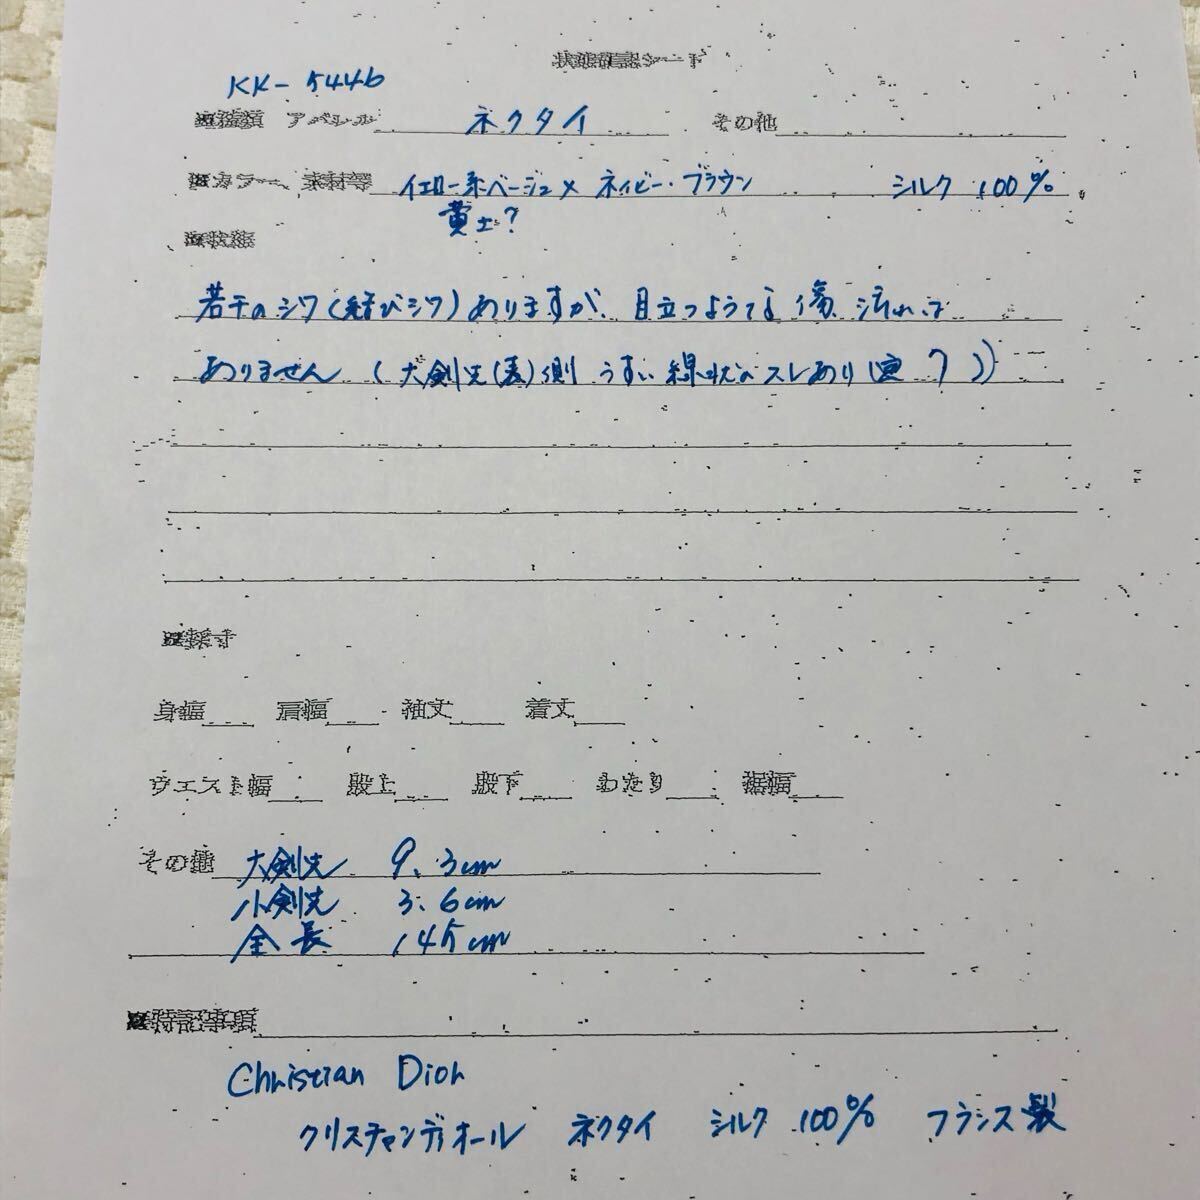 状態確認シート
KK-5446
■種類 アパレル ネクタイ その他
■カラー、素材等 イエロー系ベージュ×ネイビー・ブラウン シルク 100%
黄土?
■状態
若干のシワ(結びシワ)ありますが、目立つような傷、汚れは
ありません(大剣先(表)側 うすい線状のスレあり
■採寸
身幅 肩幅 袖丈 着丈
ウエスト幅 股上 股下 わたり 裾幅
その他 大剣先 9.3cm
小剣先 3.6cm
全長 145cm
■特記事項
Christian Dior
クリスチャンディオール ネクタイ シルク 100% フランス製